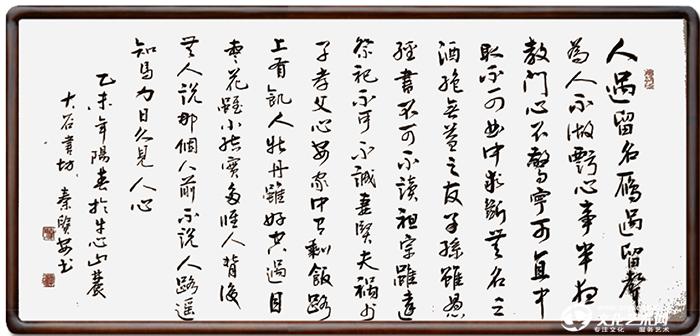 人過留名雁過留聲
為人不做虧心事半夜
敲門心不驚寧可直中
取不可曲中求斷無名之
酒絕無益之友子孫雖愚
經書不可不讀祖宗雖遠
祭祀不可不誠妻賢夫禍少
子孝父心安家中有剩飯路
上有飢人牡丹雖好空過目
枣花雖小結實多誰人背後
無人說那個人前不說人路遙
知馬力日久見人心
乙未年陽春於牛心山麓
大谷書坊 秦賢安书
文化艺术网
专注文化 服务艺术